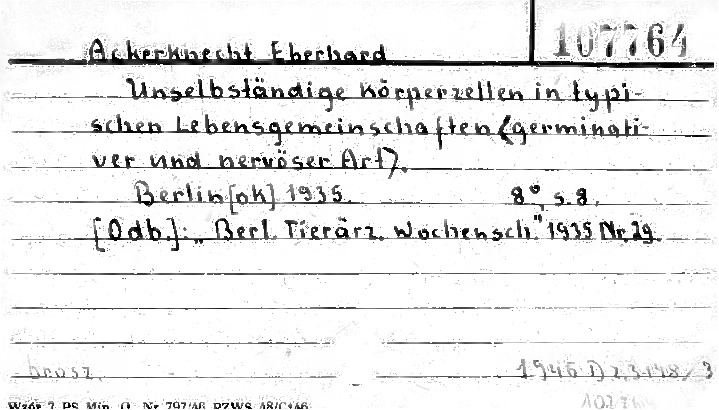 107764
Ackerknecht Eberhard
Unselbständige Körperzellen in typi-
schen Lebensgemeinschaften (germinati-
ver und nervöser Art).
Berlin [ok] 1935. 8°, s. 8.
[Odb.]: „Berl. Tierärz. Wochensch." 1935 Nr. 29.
brosz.
1946 D z. 3148/3
Wzór 7 PS Min. O. Nr 797/46 PZWS